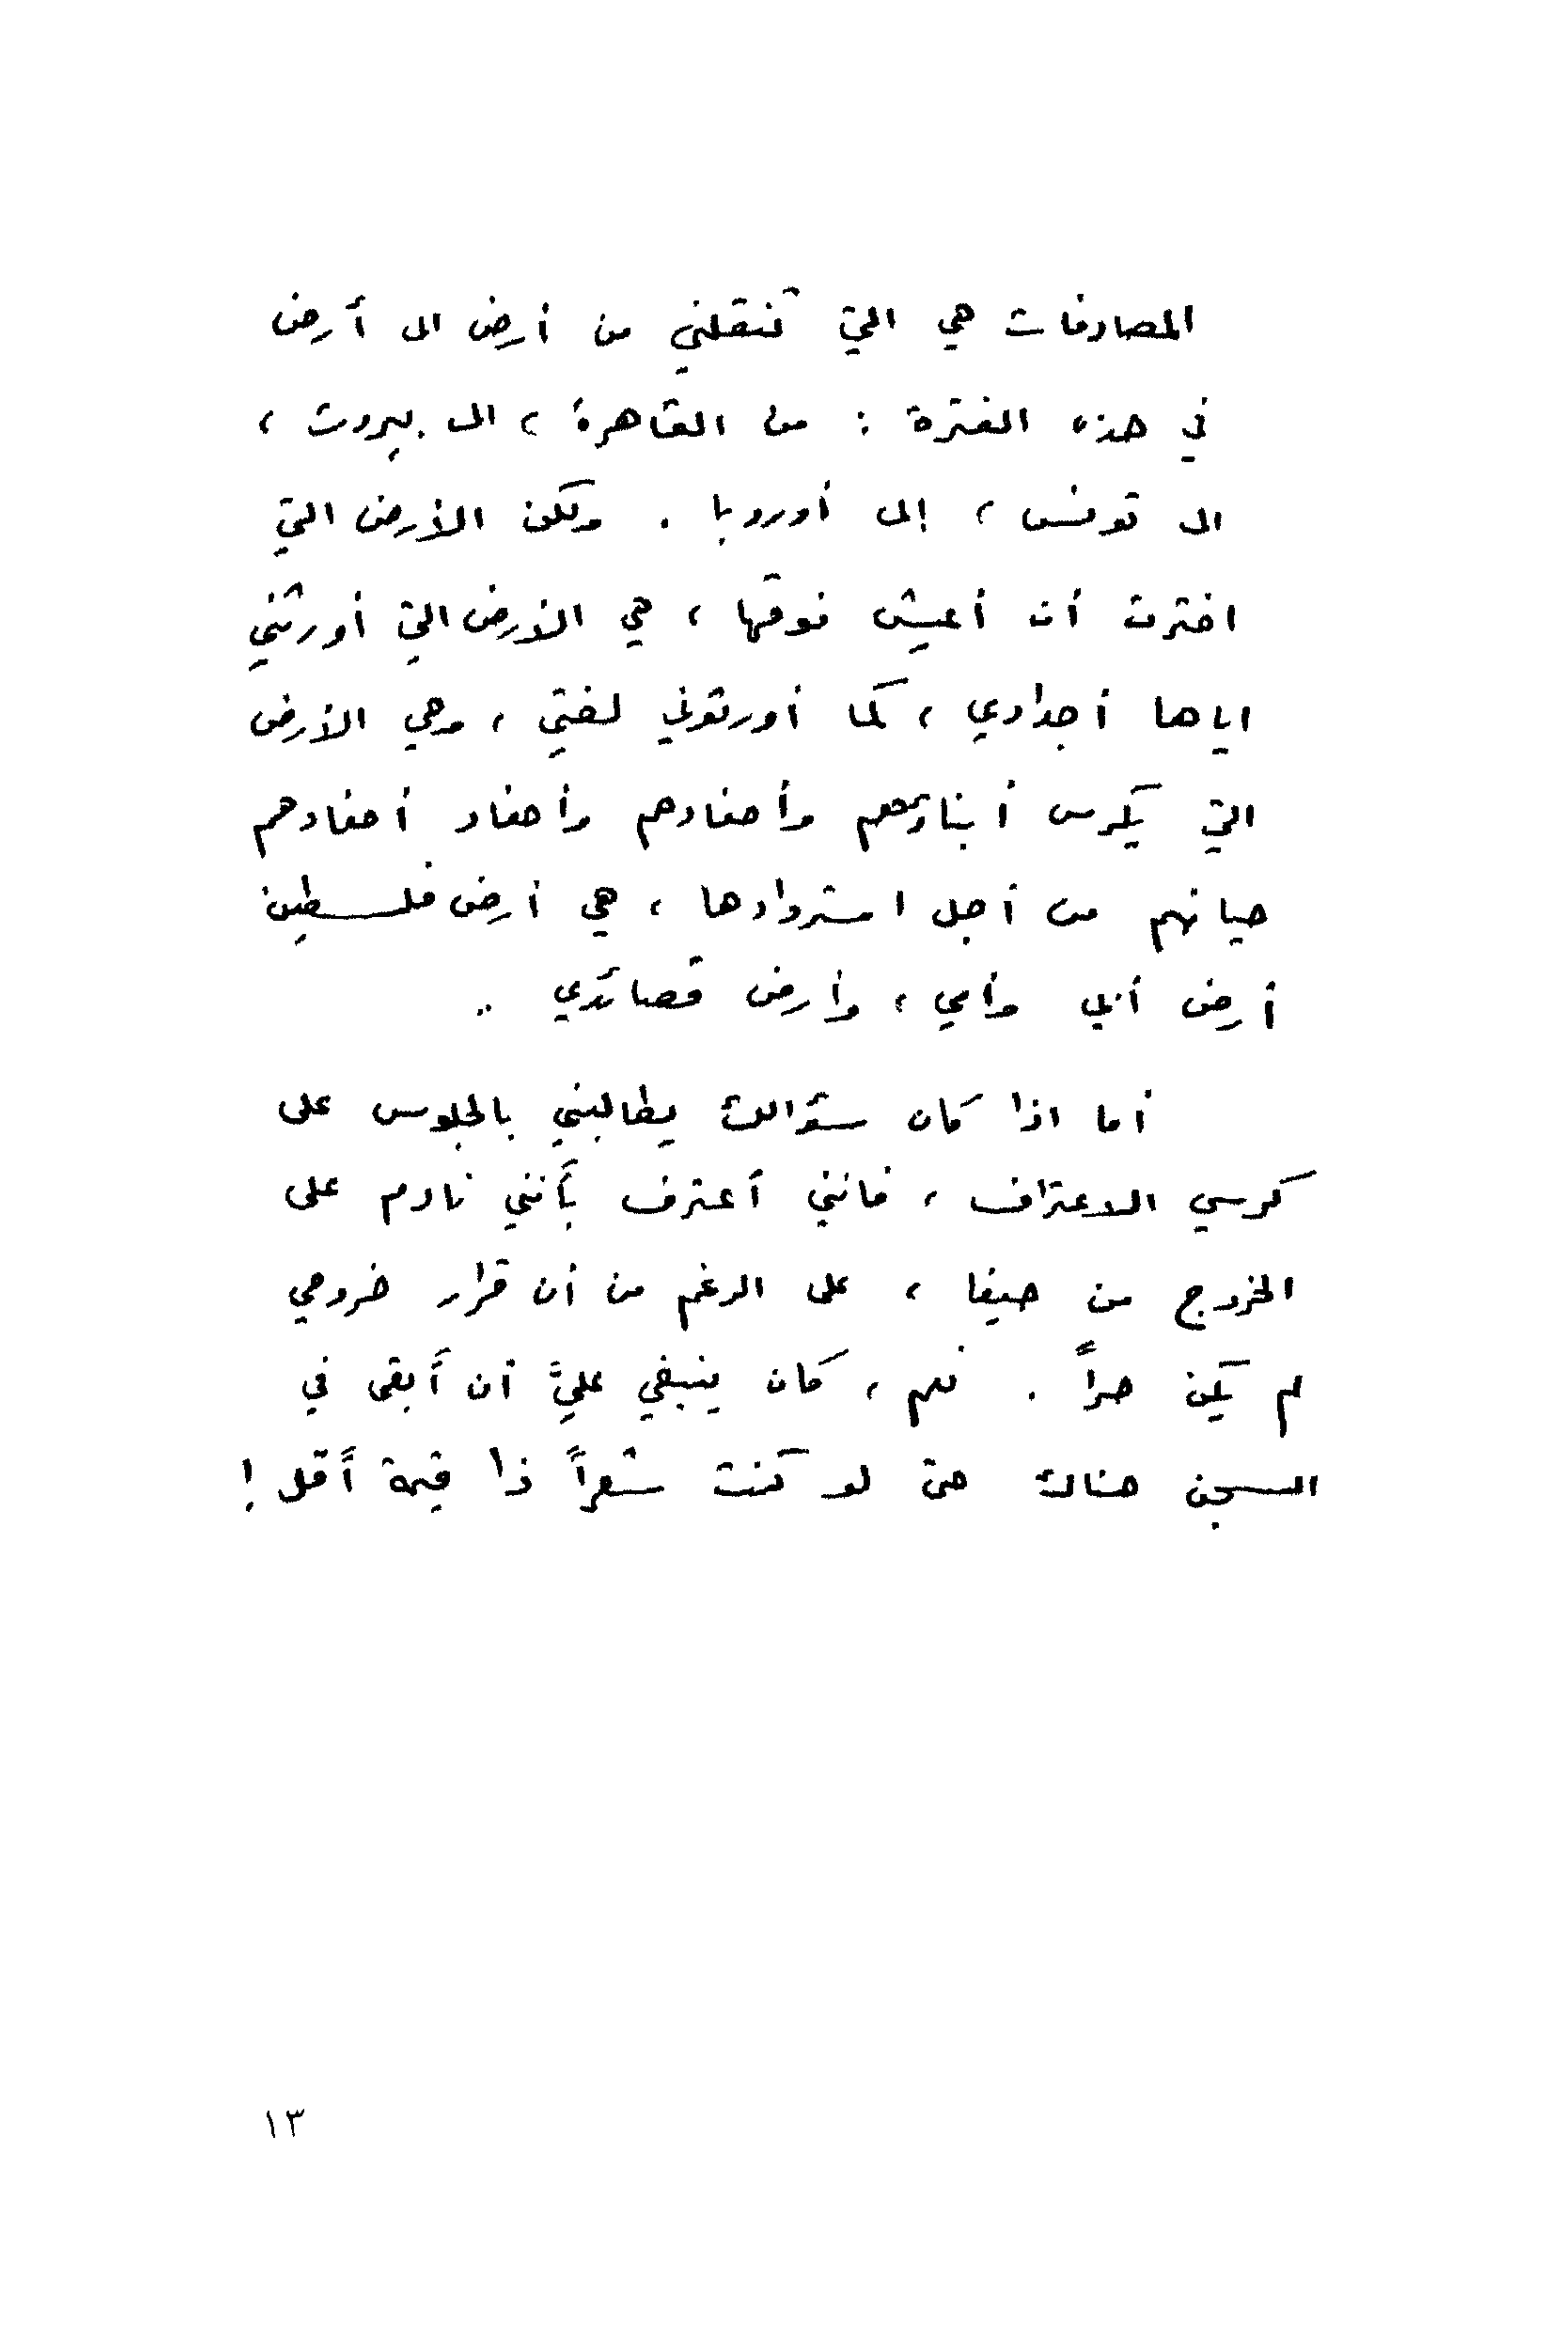 المصادفات هي التي تنقلني من أرض الى أرض
في هذه الفترة : من القاهرة ، الى بيروت ،
الى تونس ، إلى أوروبا . ولكن الأرض التي
اخترت أن أعيش فوقها ، هي الأرض التي أورثني
اياها أجدادي ، كما أورثوني لغتي ، وهي الأرض
التي يكرس أبناؤهم وأحفادهم وأحفاد أحفادهم
حياتهم من أجل استردادها ، هي أرض فلسطين
أرض أبي وأمي ، وأرض قصائدي ..
أما اذا كان سؤالك يطالبني بالجلوس على
كرسي الاعتراف ، فانني أعترف بأنني نادم على
الخروج من حيفا ، على الرغم من أن قرار خروجي
لم يكن حراً . نعم ، كان ينبغي عليَّ أن أبقى في
السجن هناك حتى لو كنت شعراً ذا قيمة أقل !
١٣